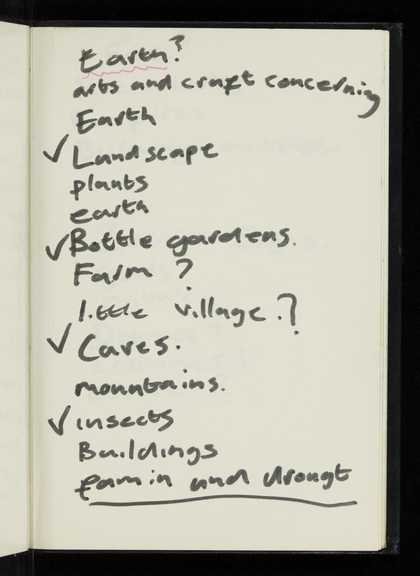 Earth?
arts and craft concerning
Earth
✓ Landscape
plants
earth
✓ Bottle gardens.
Farm ?
little village . ?
✓ Caves.
mountains.
✓ insects
Buildings
famin and drougt